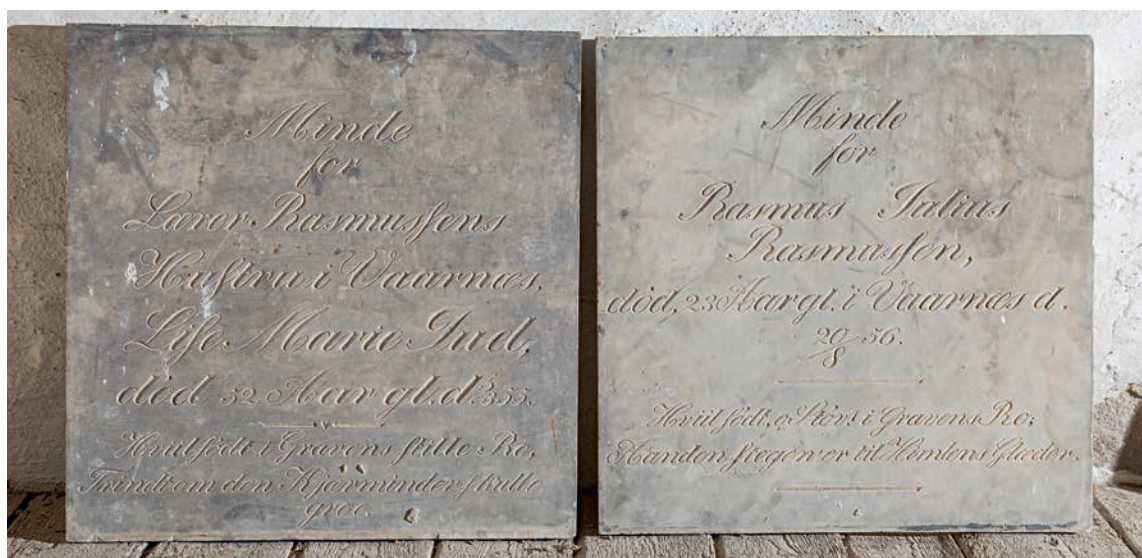 Minde
for
Lærer Rasmusſens
Huſtru i Vaarnæs,
Liſe Marie
död 52 Aar gl. d.
Hviil ſödt i Gravens ſtille Ro,
Trindt om den Kjærminder ſkulle
groe.
Minde
for
Rasmus Julius
Rasmusſen,
död, 23 Aar gl. i Vaarnæs d.
20/8 56.
Hviil ſödt, o Stöv! i Gravens Ro;
Aanden ſtegen er til Himlens Glæder.